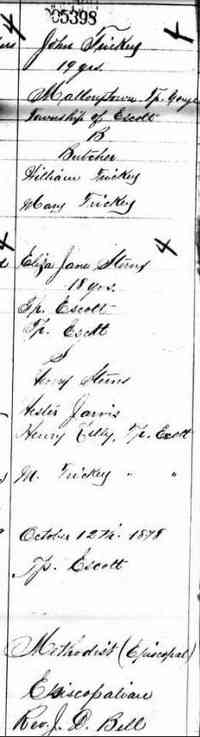 05398
John Trickey
19 yrs.
Mallorytown Tp. Yonge
Township of Escott
B
Butcher
William Trickey
Mary Trickey
Eliza Jane Sterns
18 yrs.
Tp. Escott
Tp. Escott
S
Henry Sterns
Hester Jarvis
Henry Tp. Escott
M. Trickey " "
October 12th. 1878
Tp. Escott
Methodist (Episcopal)
Episcopalian
Rev. J. D. Bell